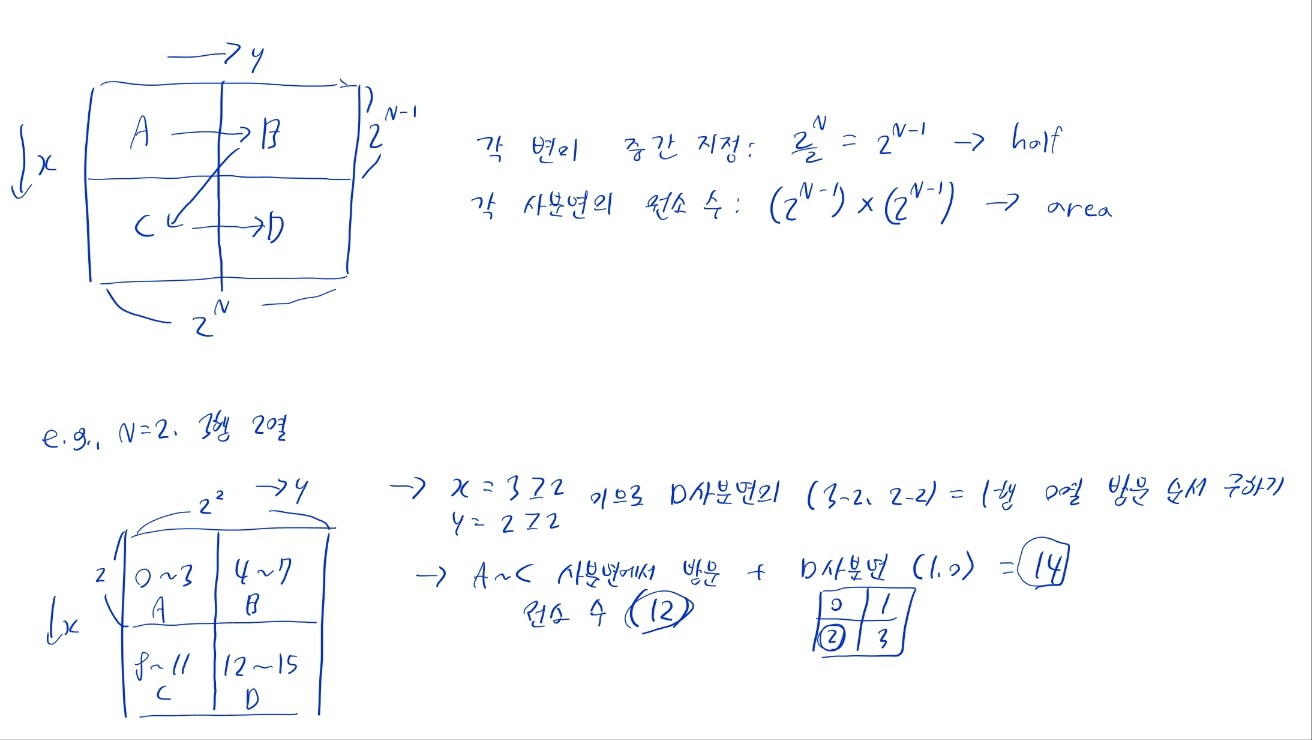 → y
A → B
2^(N-1)
↓ x
C → D
2^N
각 변의 중간 지정: 2^N/2 = 2^(N-1) → half
각 사분면의 원소 수: (2^(N-1))×(2^(N-1)) → area
e.g., N=2. 3행 2열
2^2 → y
2
0~3 4~7
A B
↓ x
8~11 12~15
C D
→ x = 3 ≥ 2 이므로 D사분면의 (3-2, 2-2) = 1행 0열 방문 순서 구하기
y = 2 ≥ 2
→ A~C 사분면에서 방문 + D사분면 (1.0) = 14
원소 수 (12)
0 1
2 3